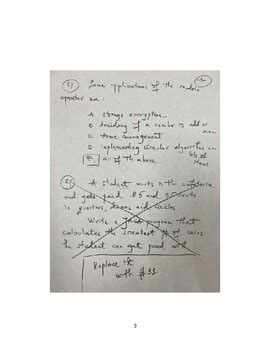 51) Some applications of the modulo
operator are:
A strings encryption
B deciding if a number is odd or
even
C time management
D implementing circular algorithms
E all of the above
A student works in the cafeteria
and gets paid
in quarters, dimes and nickles
Write a Java program that
calculates the smallest # of coins
the student can get paid with
Replace it
with #
3